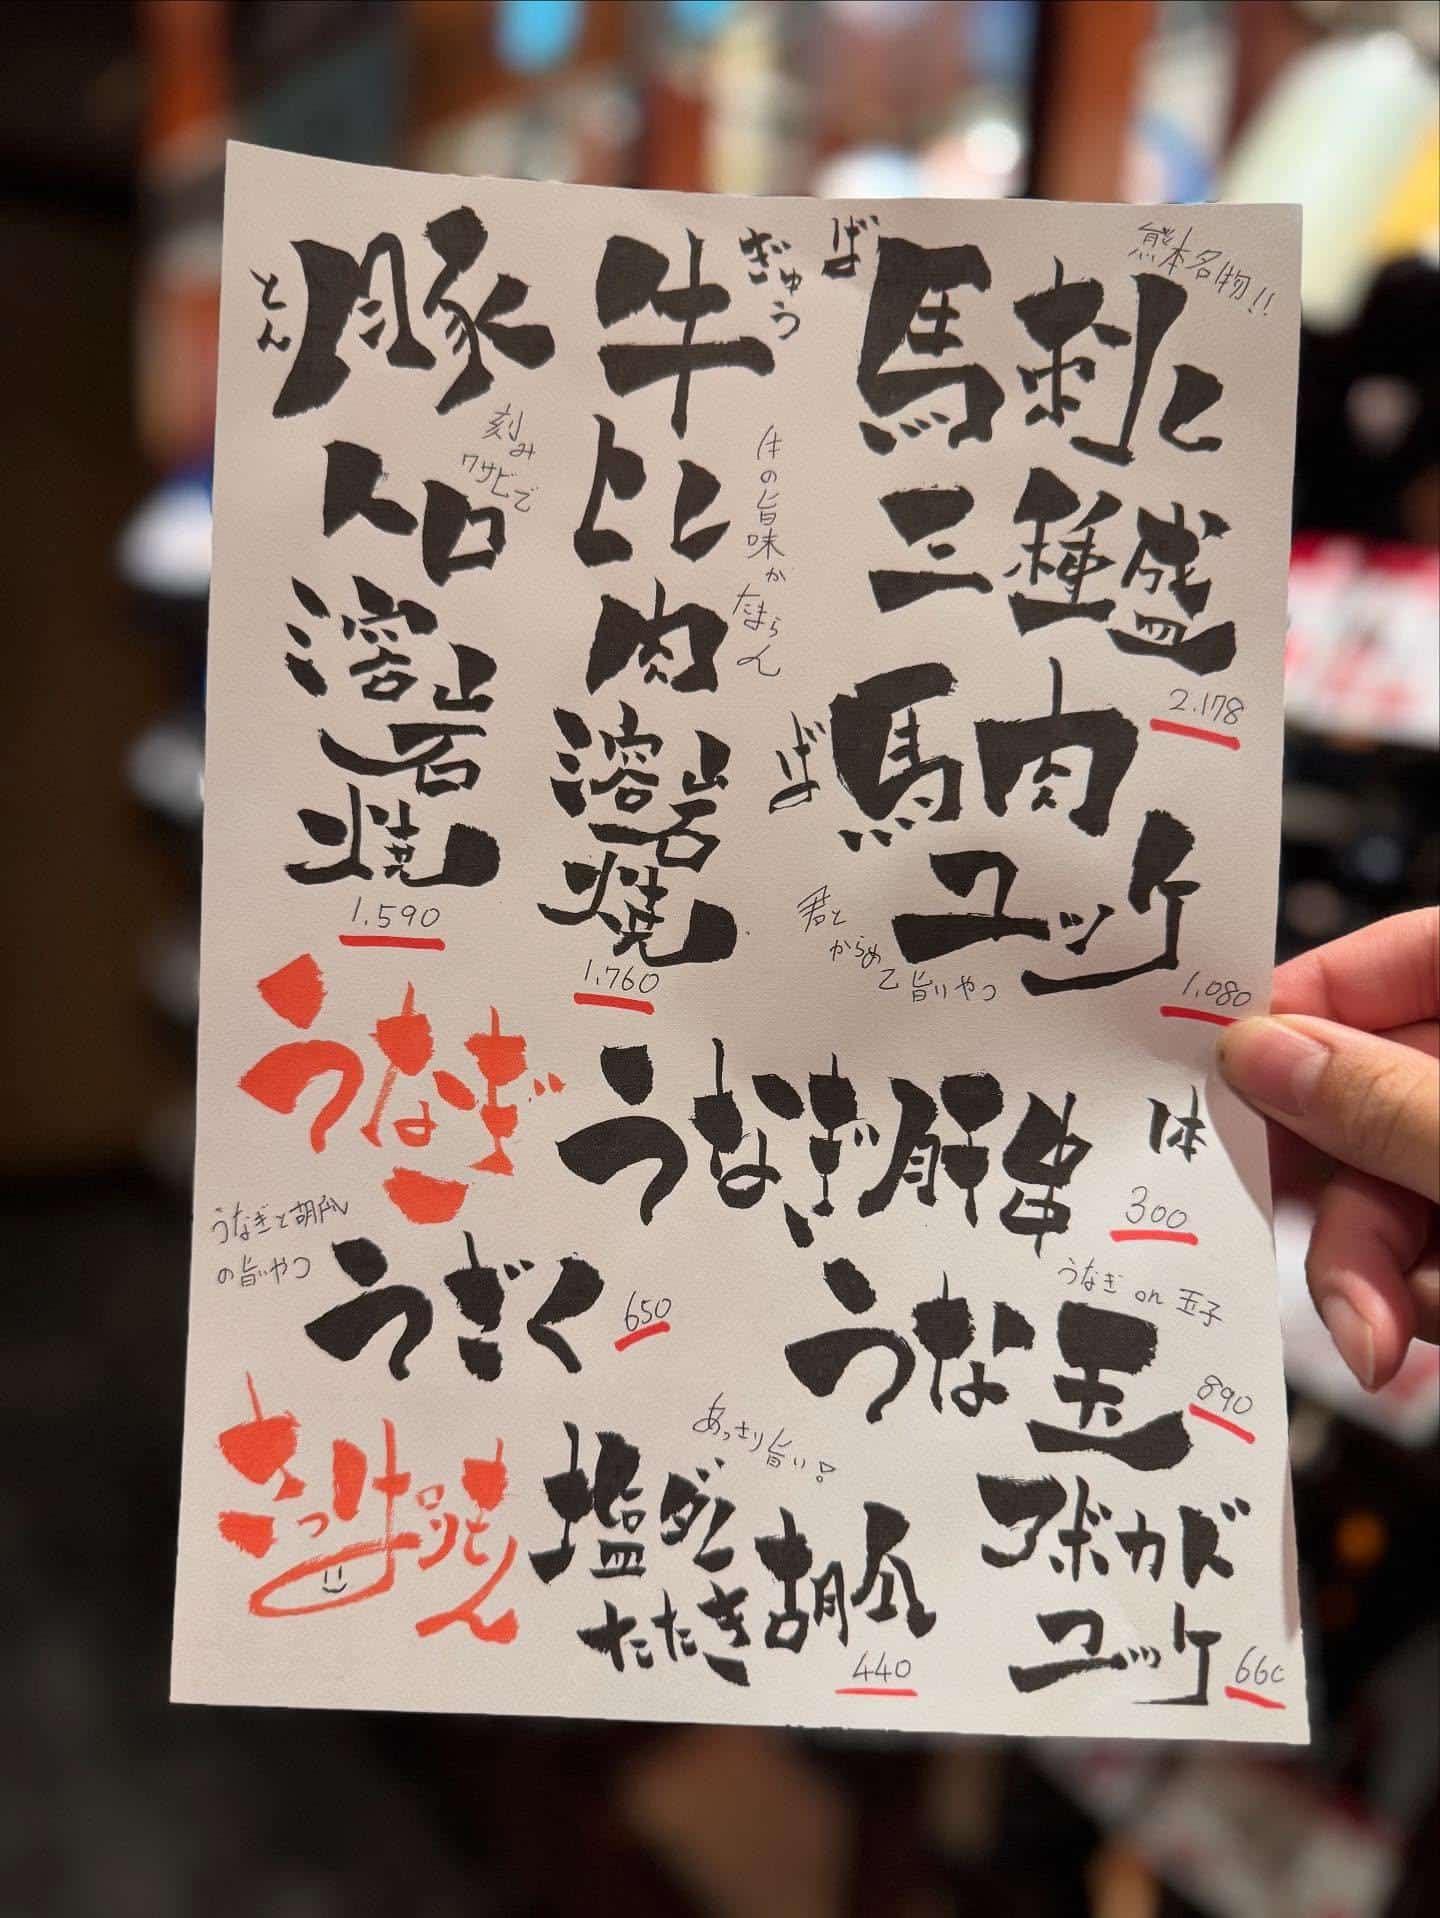 熊本名物!!
ば
馬刺し
三種盛
2.178
ば
馬肉
ユッケ
君と
からめ
て旨いやつ
1.080
ぎゅう
牛
ヒレ
肉
溶岩
焼
の旨味が
たまらん
1.760
とん
豚
トロ
溶岩
焼
刻み
ワサビで
1.590
うなぎ
うなぎ肝串
300
うなぎと胡瓜
の旨いやつ
うざく
650
うなぎ on 玉子
うな玉
890
あっさり旨い。
塩ダレ
たたき胡瓜
440
アボカド
ユッケ
660